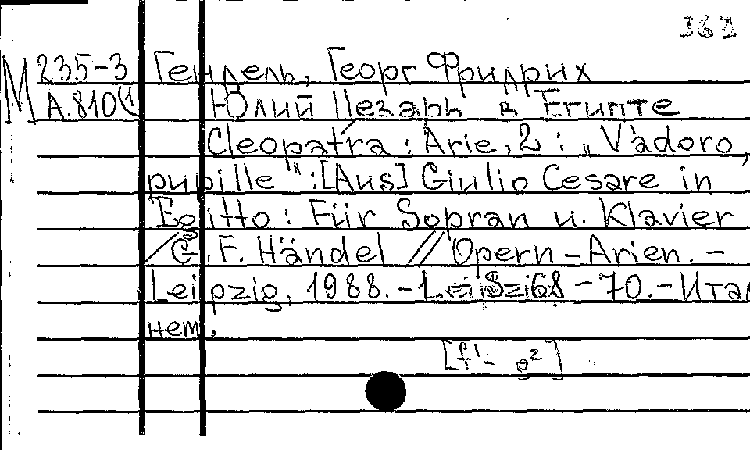 362
М 235-3 Гендель, Георг Фридрих
А.810 Юлий Цезарь в Египте
Cleopatra: Arie, 2: „Vàdoro,
pupille": [Aus] Giulio Cesare in
Egitto: Für Sopran u. Klavier
/ G. F. Händel // Opern-Arien. –
Leipzig, 1988. – S. 68 – 70. – Итал
нем.
[f¹ – g²]